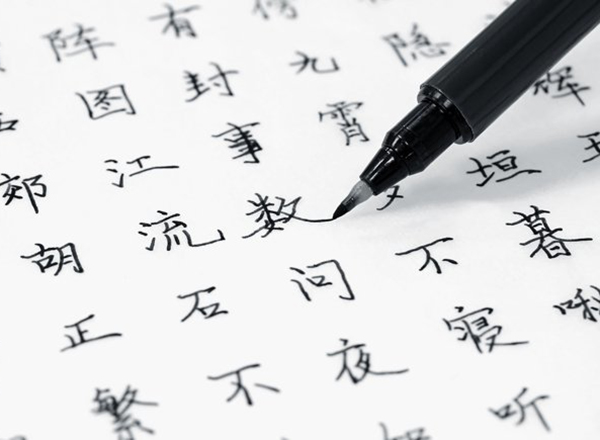 辉
隐垣暮啾
傍九霄不寝听
有封事数问夜
阵图江流石不
郊胡正繁